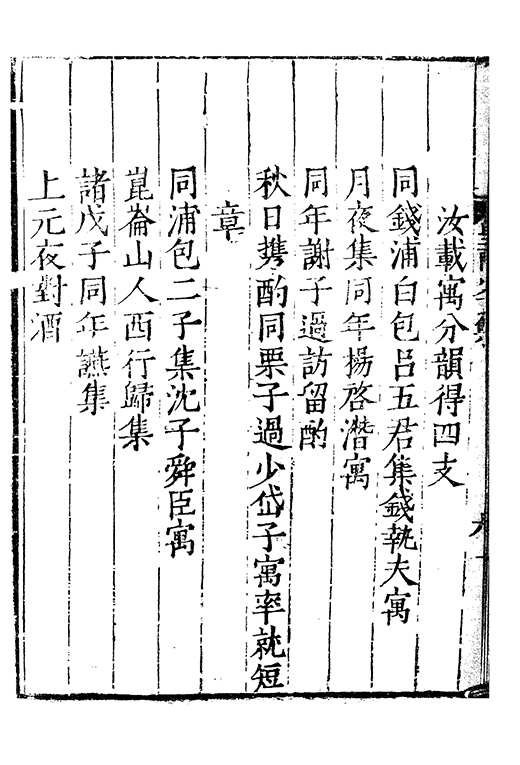 汝載寓分韻得四支
同錢浦白包呂五君集錢執夫寓
月夜集同年揚啓潛寓
同年謝子過訪留酌
秋日携酌同栗子過少岱子寓率就短
章
同浦包二子集沈子舜臣寓
崑崙山人西行歸集
諸戊子同年讌集
上元夜對酒